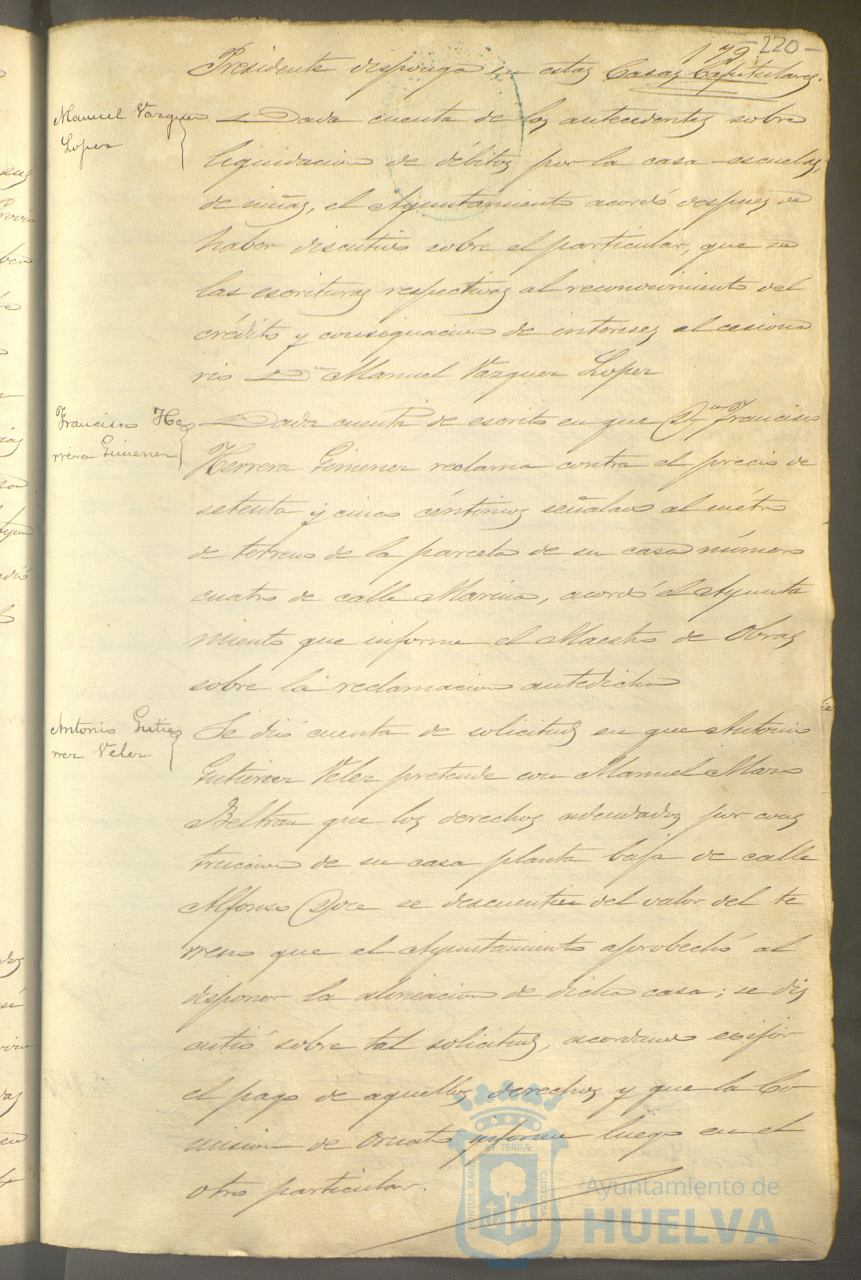 179 220
Presidente disponga en estas Casas Capitulares.
Manuel Vazquez
Lopez
Dada cuenta de los antecedentes sobre
liquidacion de débitos por la casa-escuela,
de niñas, el Ayuntamiento acordó despues de
haber discutido sobre el particular, que se
las escrituras respectivas al reconocimiento del
crédito y consignacion de intereses al cesiona
rio Dn Manuel Vazquez Lopez
Francisco He
rrera Gimenez
Dada cuenta de escrito en que Dn Francisco
Herrera Gimenez reclama contra el precio de
setenta y cinco céntimos señalado al métro
de terreno de la parcela de su casa número
cuatro de calle Marina, acordó el Ayunta
miento que informe el Maestro de Obras
sobre la reclamacion antedicha
Antonio Gutie
rrez Velez
Se dió cuenta de solicitud en que Antonio
Gutierrez Velez pretende con Manuel Maro
Beltran que los derechos adeudados por cons
truccion de su casa planta baja de calle
Alfonso Doce se descuenten del valor del te
rreno que el Ayuntamiento aprobechó al
disponer la alineacion de dicha casa; se dis
cutió sobre tal solicitud, acordando exijir
el pago de aquellos derechos y que la Co-
mision de Ornato informe luego en el
otro particular.
PORTUS MARIS ET TERRÆ CUSTODIA
Ayuntamiento de
HUELVA